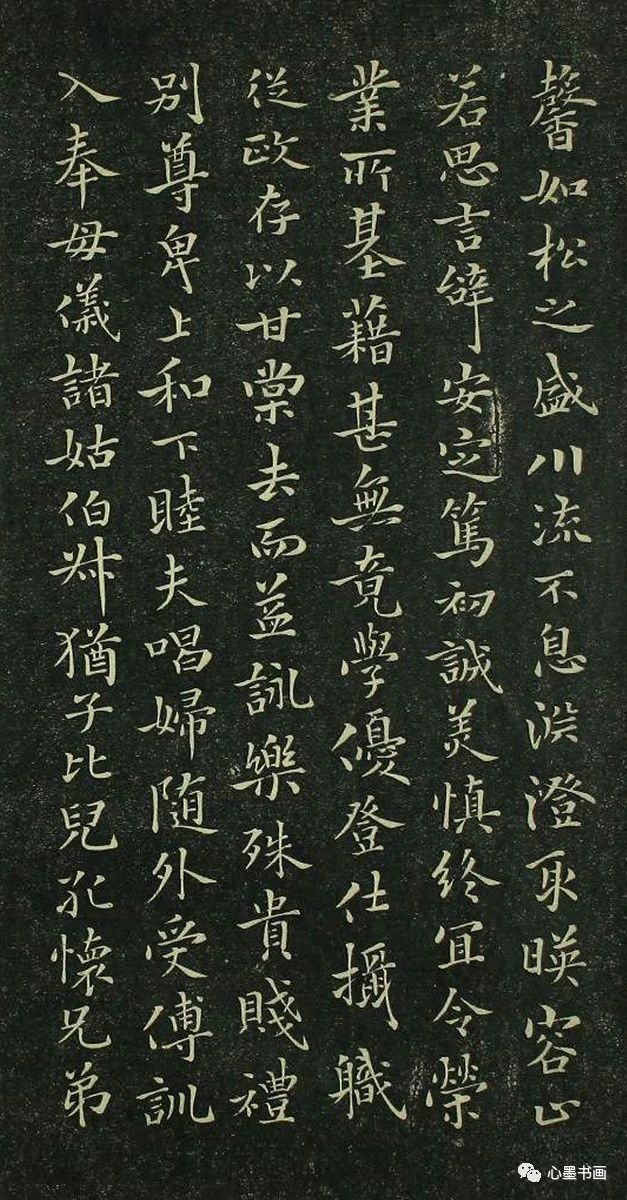 馨如松之盛川流不息渕澄取暎容止
若思言辝安定篤初誠美慎終宜令榮
業所基藉甚無竟學優登仕攝職
從政存以甘棠去而益詠樂殊貴賤禮
别尊卑上和下睦夫唱婦随外受傅訓
入奉母儀諸姑伯叔猶子比兒孔懷兄弟
心墨书画